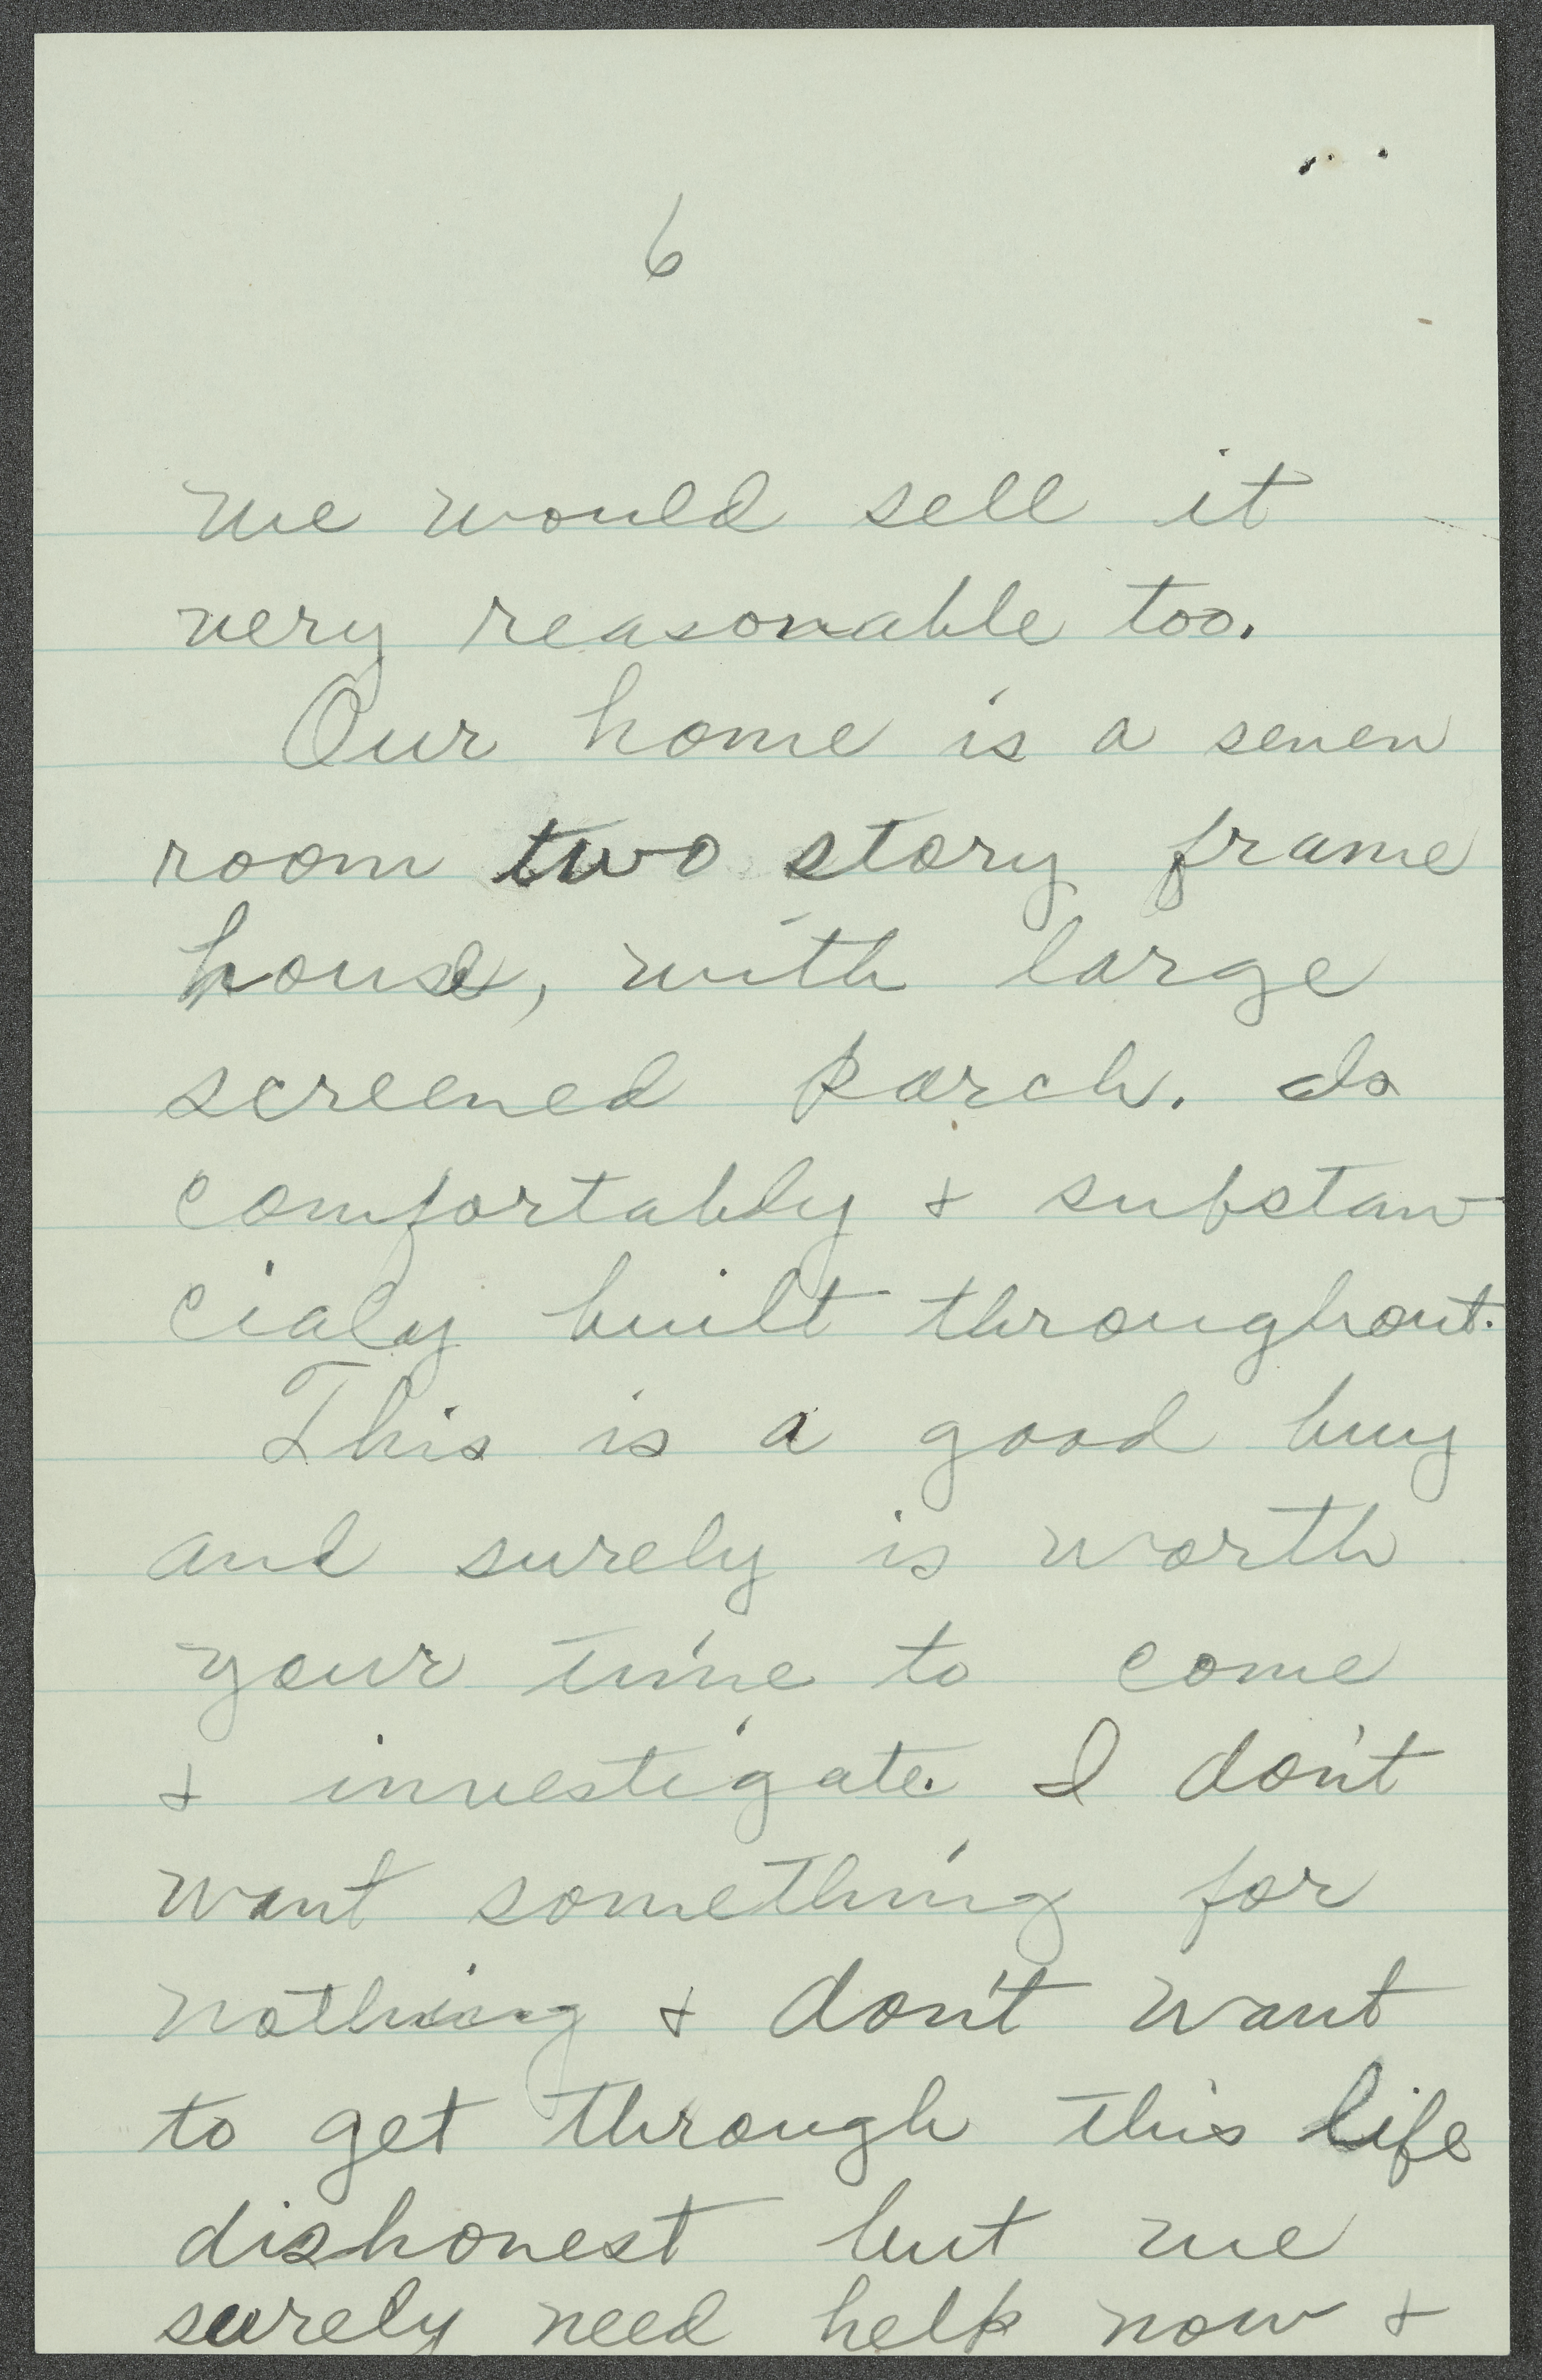 6
we would sell it
very reasonable too.
Our home is a seven
room two story frame
house, with large
screened porch. Is
comfortably & substan
cialy built throughout.
This is a good buy
and surely is worth
your time to come
& investigate. I don't
want something for
nothing & don't want
to get through this life
dishonest but we
surely need help now &